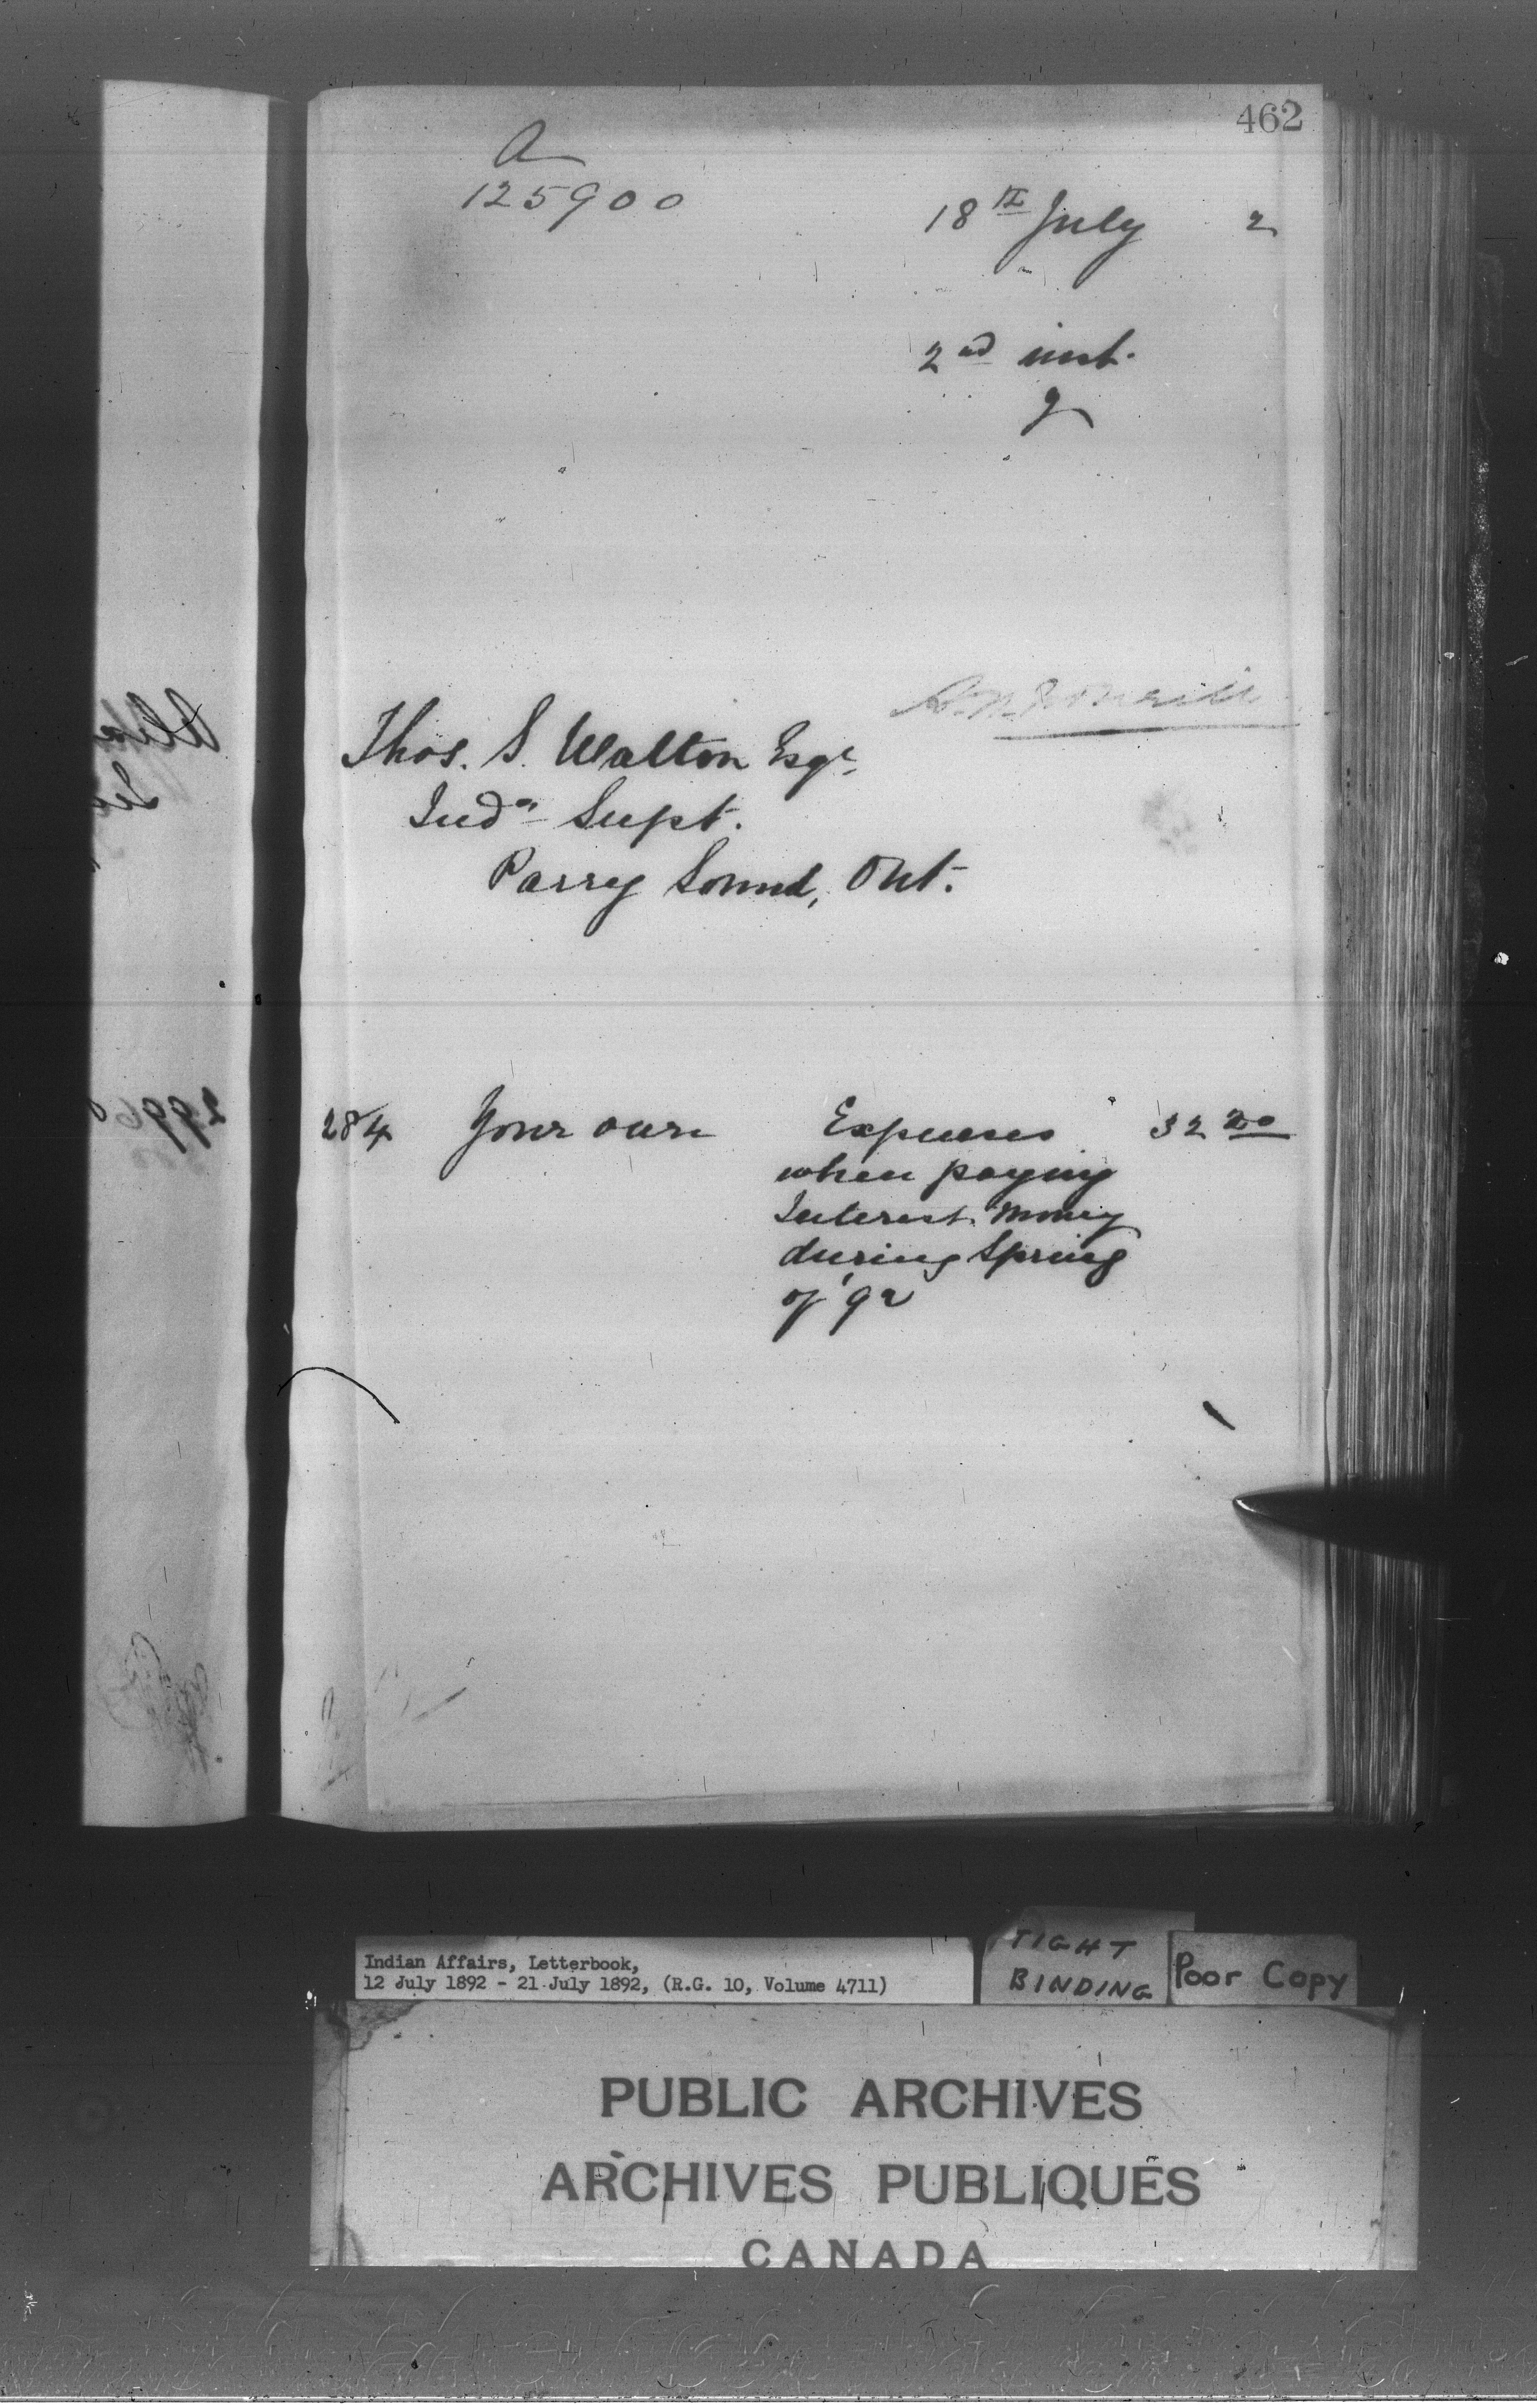 462
a
125900
18th July 2
2nd inst.
Thos. S. Walton Esqr.
Indn Supt.
Parry Sound, Ont.
284 Your own Expenses 32 20
when paying
Interest Money
during Spring
of '92
Indian Affairs, Letterbook,
12 July 1892 - 21 July 1892, (R.G. 10, Volume 4711)
TIGHT
BINDING
Poor Copy
PUBLIC ARCHIVES
ARCHIVES PUBLIQUES
CANADA